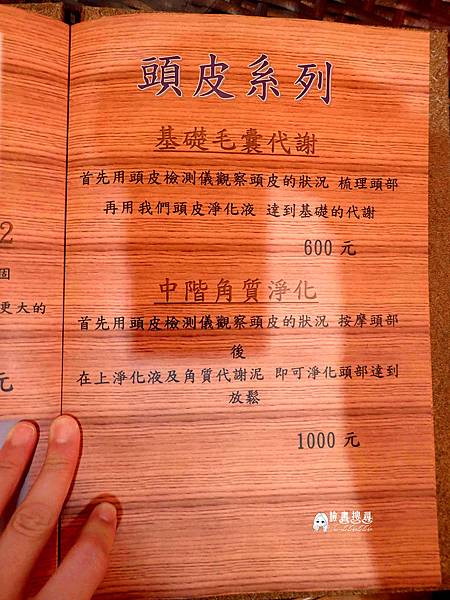 頭皮系列
基礎毛囊代謝
首先用頭皮檢測儀觀察頭皮的狀況 梳理頭部
再用我們頭皮淨化液 達到基礎的代謝
600 元
中階角質淨化
首先用頭皮檢測儀觀察頭皮的狀況 按摩頭部
後
在上淨化液及角質代謝泥 即可淨化頭部達到
放鬆
1000 元
2
個
更大的
元
臉書搜尋